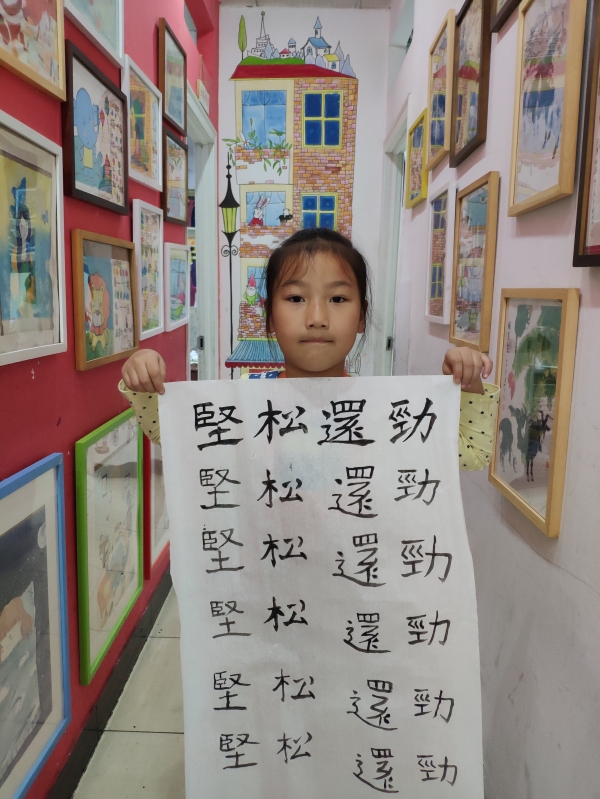 堅松還勁
堅松還勁
堅松還勁
堅松還勁
堅松還勁
堅松還勁